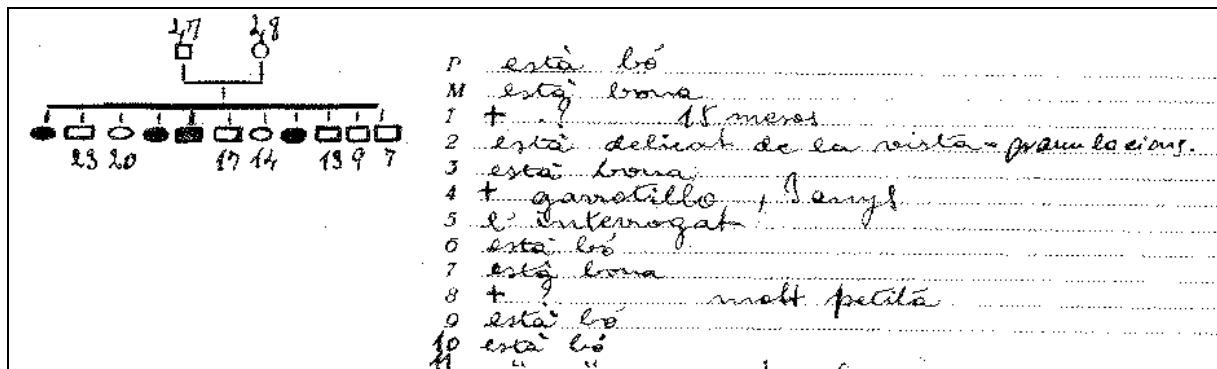 47 48
23 20 17 14 13 9 7
P està bó
M està bona
1 + ? 15 mesos
2 està delicat de la vista = granulacions.
3 està bona
4 + garrotillo, 3 anys
5 l'interrogat
6 està bó
7 està bona
8 + ? molt petita
9 està bó
10 està bó
11 " "